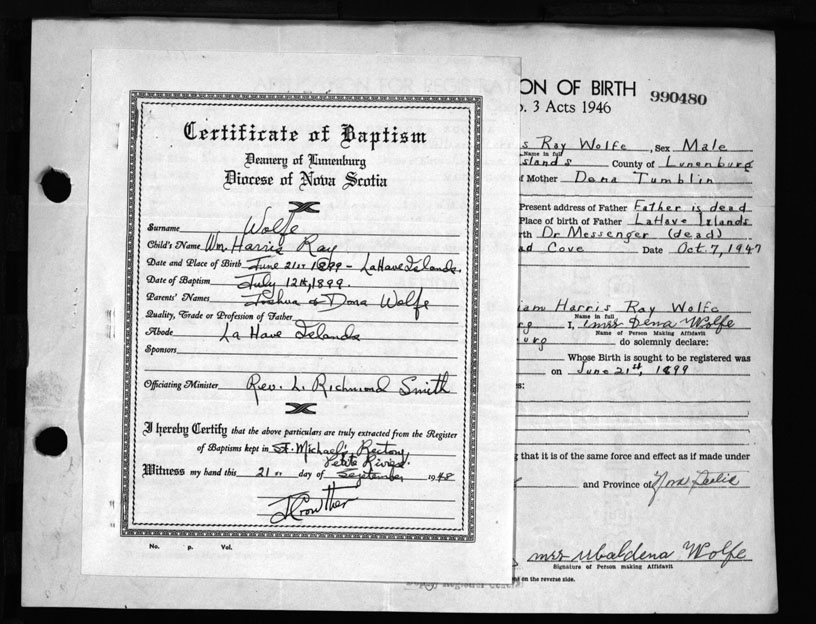 Certificate of Baptism
Deanery of Lunenburg
Diocese of Nova Scotia
Surname Wolfe
Child's Name Wm. Harris Ray
Date and Place of Birth June 21st 1899 - LaHave Islands.
Date of Baptism July 12th, 1899.
Parents' Names Joshua & Dona Wolfe
Quality, Trade or Profession of Father
Abode La Have Islands
Sponsors
Officiating Minister Rev. L. Richmond Smith
I hereby Certify that the above particulars are truly extracted from the Register
of Baptisms kept in St. Michael's Rectory
Petite Riviere
Witness my hand this 21st day of September 1948
J Crowther
No. P. Vol.
ON OF BIRTH 990480
. 3 Acts 1946
s Ray Wolfe, Sex Male
Name in full
slands County of Lunenburg
f Mother Dena Tumblin
Present address of Father Father is dead
Place of birth of Father LaHave Islands
rth Dr Messenger (dead)
ad Cove Date Oct. 7, 1947
iam Harris Ray Wolfe
Name in full
rg I, Mrs Dena Wolfe
Name of Person Making Affidavit
burg do solemnly declare:
Whose Birth is sought to be registered was
on June 21st, 1899
s:
g that it is of the same force and effect as if made under
and Province of Nova Scotia
Mrs Ubaldena Wolfe
Signature of Person making Affidavit
nt on the reverse side.